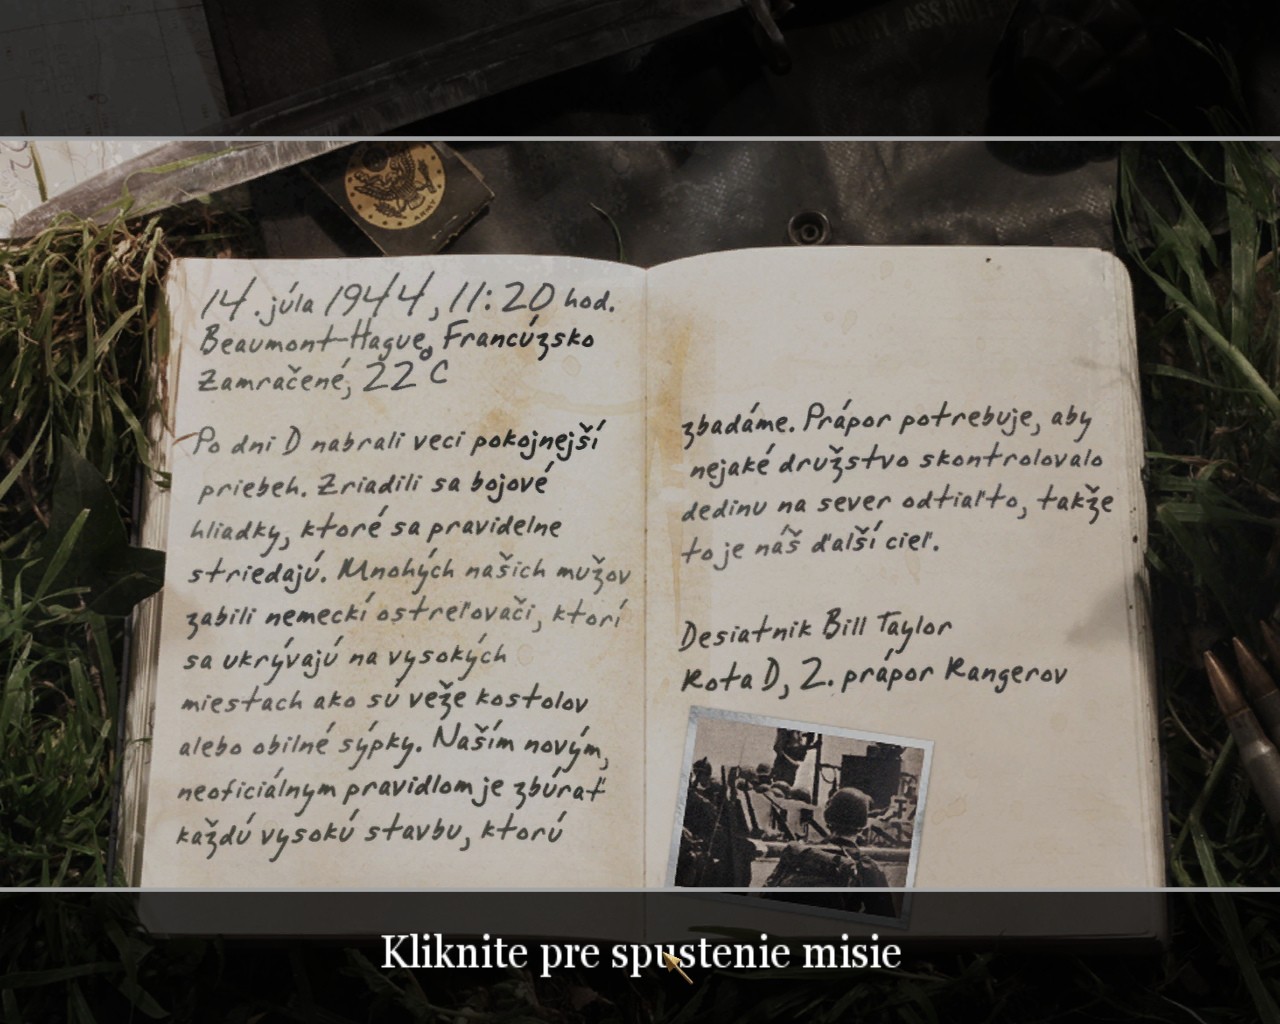 ARMY ASSAUL
ARMY
14. júla 1944, 11:20 hod.
Beaumont-Hague, Francúzsko
Zamračené, 22°C
Po dni D nabrali veci pokojnejší
priebeh. Zriadili sa bojové
hliadky, ktoré sa pravidelne
striedajú. Mnohých našich mužov
zabili nemeckí ostreľovači, ktorí
sa ukrývajú na vysokých
miestach ako sú veže kostolov
alebo obilné sýpky. Naším novým,
neoficiálnym pravidlom je zbúrať
každú vysokú stavbu, ktorú
zbadáme. Prápor potrebuje, aby
nejaké družstvo skontrolovalo
dedinu na sever odtiaľto, takže
to je náš ďalší cieľ.
Desiatnik Bill Taylor
Rota D, 2. prápor Rangerov
Kliknite pre spustenie misie